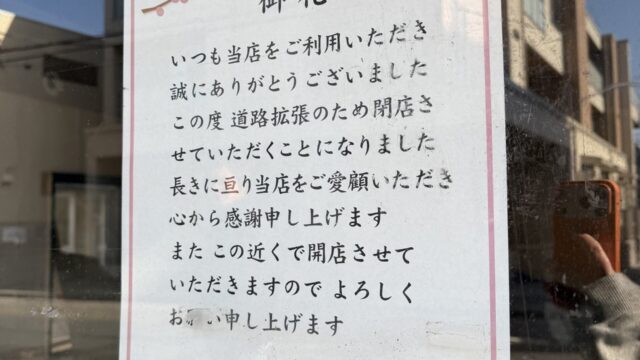 御礼
いつも当店をご利用いただき
誠にありがとうございました
この度 道路拡張のため閉店さ
せていただくことになりました
長きに亘り当店をご愛顧いただき
心から感謝申し上げます
また この近くで開店させて
いただきますので よろしく
お い申し上げます